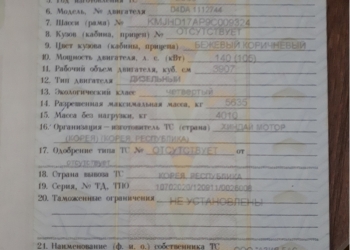 6. Модель, № двигателя D4DA
7. Шасси (рама) №
8. Кузов (кабина, прицеп) № ОТСУТСТВУЕТ
9. Цвет кузова (кабины, прицепа) БЕЖЕВЫЙ КОРИЧНЕВЫЙ
10. Мощность двигателя, л. с. (кВт) 140 (103)
11. Рабочий объем двигателя, куб. см 3907
12. Тип двигателя ДИЗЕЛЬНЫЙ
13. Экологический класс ЧЕТВЕРТЫЙ
14. Разрешенная максимальная масса, кг 5635
15. Масса без нагрузки, кг 4010
16. Организация – изготовитель ТС (страна) ХЭНДАЙ МОТОР
(КОРЕЯ) (КОРЕЯ, РЕСПУБЛИКА)
17. Одобрение типа ТС № ОТСУТСТВУЕТ от
18. Страна вывоза ТС КОРЕЯ, РЕСПУБЛИКА
19. Серия, № ТД, ТПО
20. Таможенные ограничения НЕ УСТАНОВЛЕНЫ
21. Наименование (ф. и. о.) собственника ТС